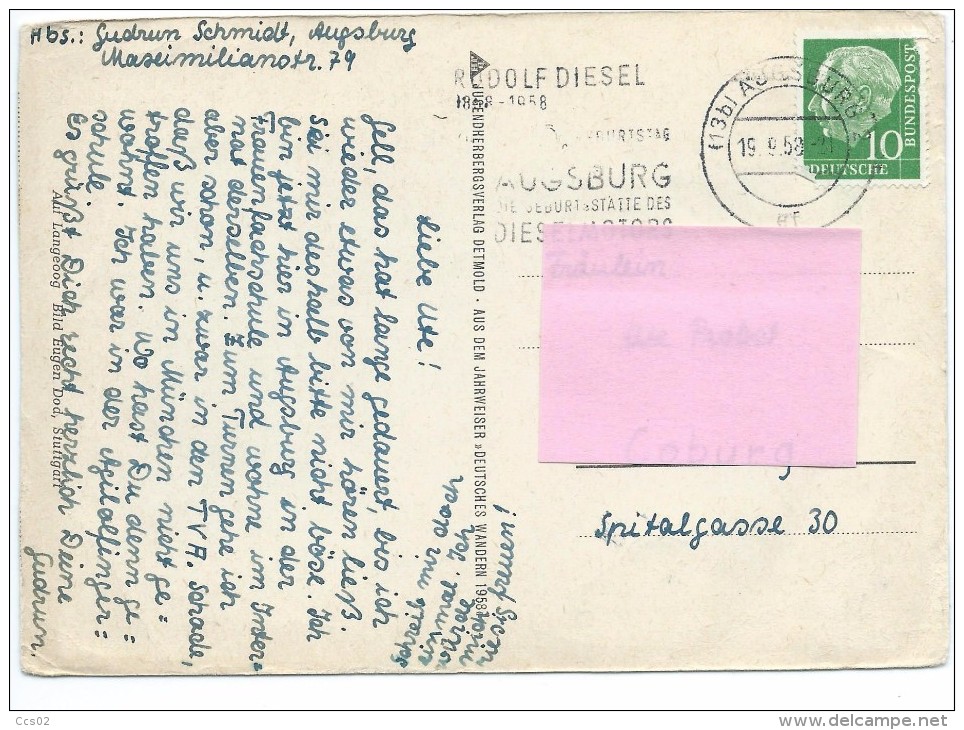 Abs.: Gudrun Schmidt, Augsburg
Maximilianstr. 79
RUDOLF DIESEL
1858 - 1958
GEBURTSTAG
AUGSBURG
DIE GEBURTSSTÄTTE DES
DIESELMOTORS
(13b) AUGSBURG
19.9.58
DEUTSCHE
BUNDESPOST
10
Liebe Ute!
Gell, das hat lange gedauert, bis ich
wieder etwas von mir hören ließ.
Sei mir deshalb bitte nicht böse. Ich
bin jetzt hier in Augsburg in der
Frauenfachschule und wohne im Inter=
nat derselben. Zum Turnen gehe ich
aber schon, u. zwar in den TVA. Schade,
daß wir uns in München nicht ge=
troffen haben. Wo hast Du denn ge=
wohnt. Ich war in der Agilolfinger=
schule.
Es grüßt Dich recht herzlich Deine
Gudrun.
Auf Langeoog Bild Eugen Dod, Stuttgart
JUGENDHERBERGSVERLAG DETMOLD · AUS DEM JAHRWEISER »DEUTSCHES WANDERN 1958«
Fräulein
Coburg
Spitalgasse 30
Ccs02
www.delcampe.net